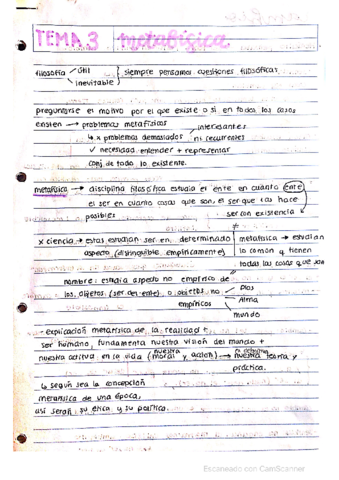 TEMA 3 metafísica
filosofía útil
inevitable
siempre pensamos cuestiones filosóficas
preguntarse el motivo por el que existe o si en todos los casos
existen → problemas metafísicos
↳ x problemas demasiados interesantes
ni recurrentes
✓ necesidad entender + representar
conj. de todo lo existente.
metafísica → disciplina filosófica estudia el ente en cuanto ente
el ser en cuanto cosas que son, el ser que las hace
posibles
ser con existencia
≠
x ciencia → estas estudian ser en determinado
aspecto (distinguible empíricamente)
metafísica → estudian
lo común q tienen
todas las cosas que son
nombre: estudia aspecto no empírico de
los objetos (ser del ente) o objetos no
empíricos
Dios
Alma
mundo
- explicación metafísica de la realidad +
ser humano, fundamenta nuestra visión del mundo +
nuestra actitud en la vida (nuestra moral y acción) → nuestra teoría y
práctica.
↳ según sea la concepción
metafísica de una época,
así serán su ética y su política.
Escaneado con CamScanner